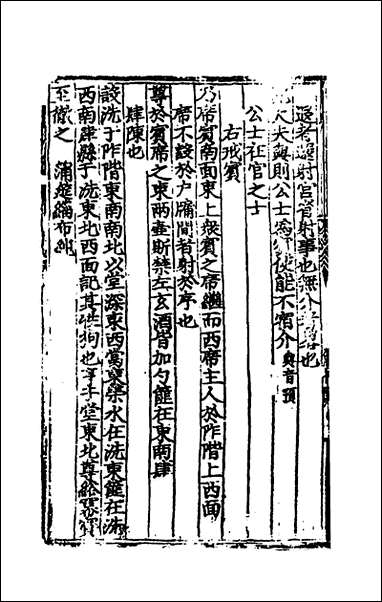 退者適射宮省射事也無介
大夫與則公士為賓使能不宿介與音預
公士在官之士
右戒賓
乃席賓南面東上眾賓之席繼而西席主人於阼階上西面
席不設於户牖間者射於序也
尊於賓席之東兩壺斯禁左玄酒皆加勺篚在東南肆
肆陳也
設洗于阼階東南南北以堂深東西當東榮水在洗東篚在洗
西南肆縣于洗東北西面記其牲狗也亨于堂東北尊綌冪賓
至徹之 蒲筵緇布純